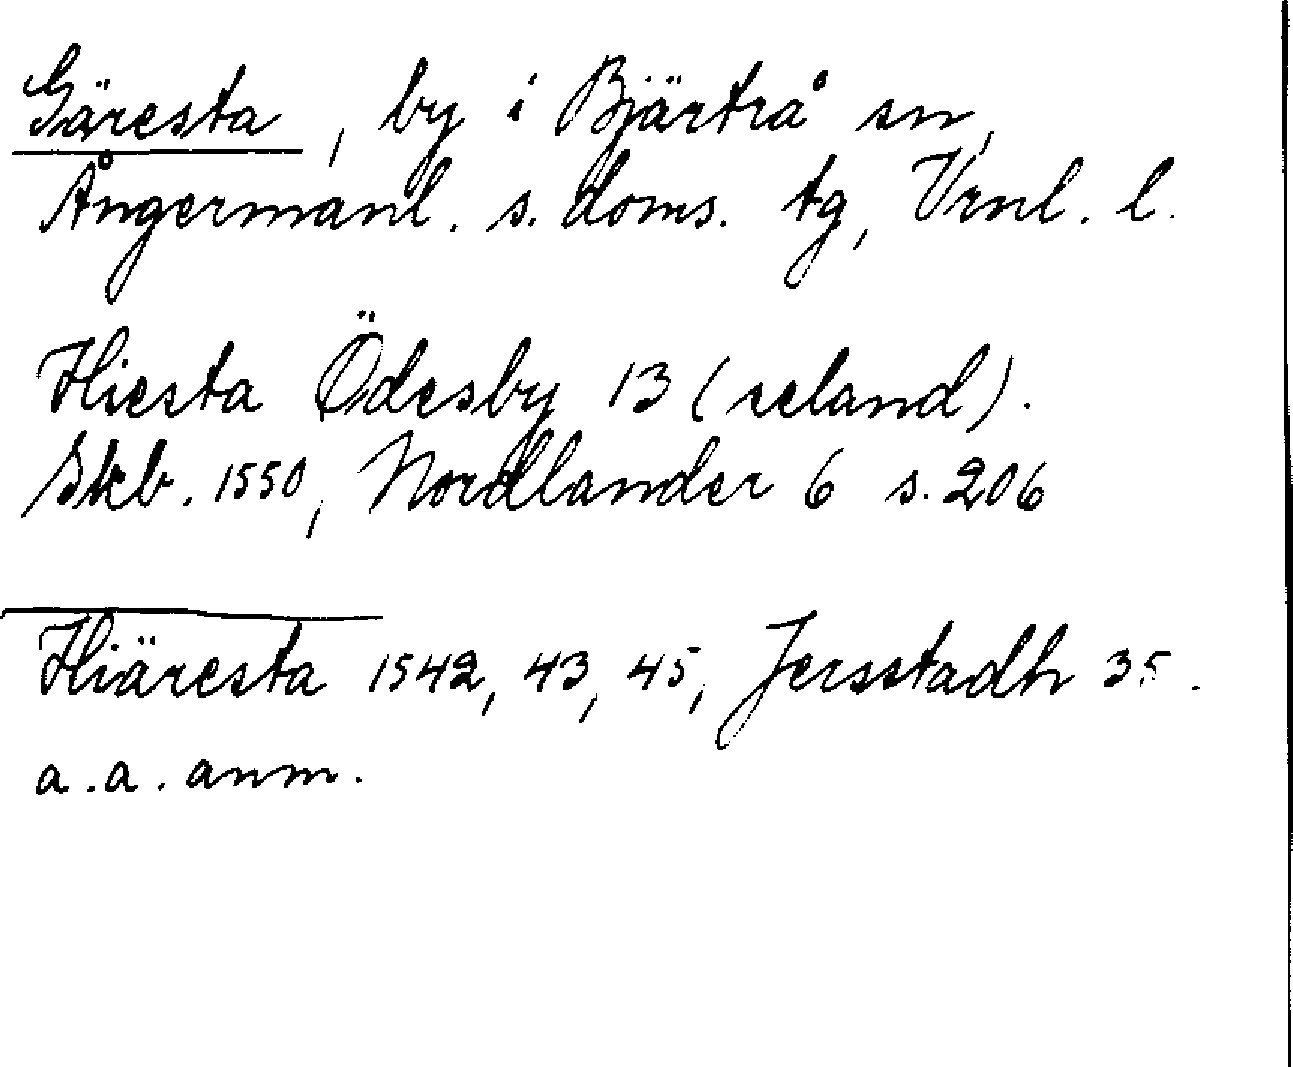 Gäresta, by i Bjärtrå sn,
Ångermanl. s. doms. tg, Vrnl. l.
Hiesta Ödesby 13 (seland).
Skb. 1550, Nordlander 6 s. 206
Hiäresta 1542, 43, 45, Jersstadh 35.
a. a. anm.